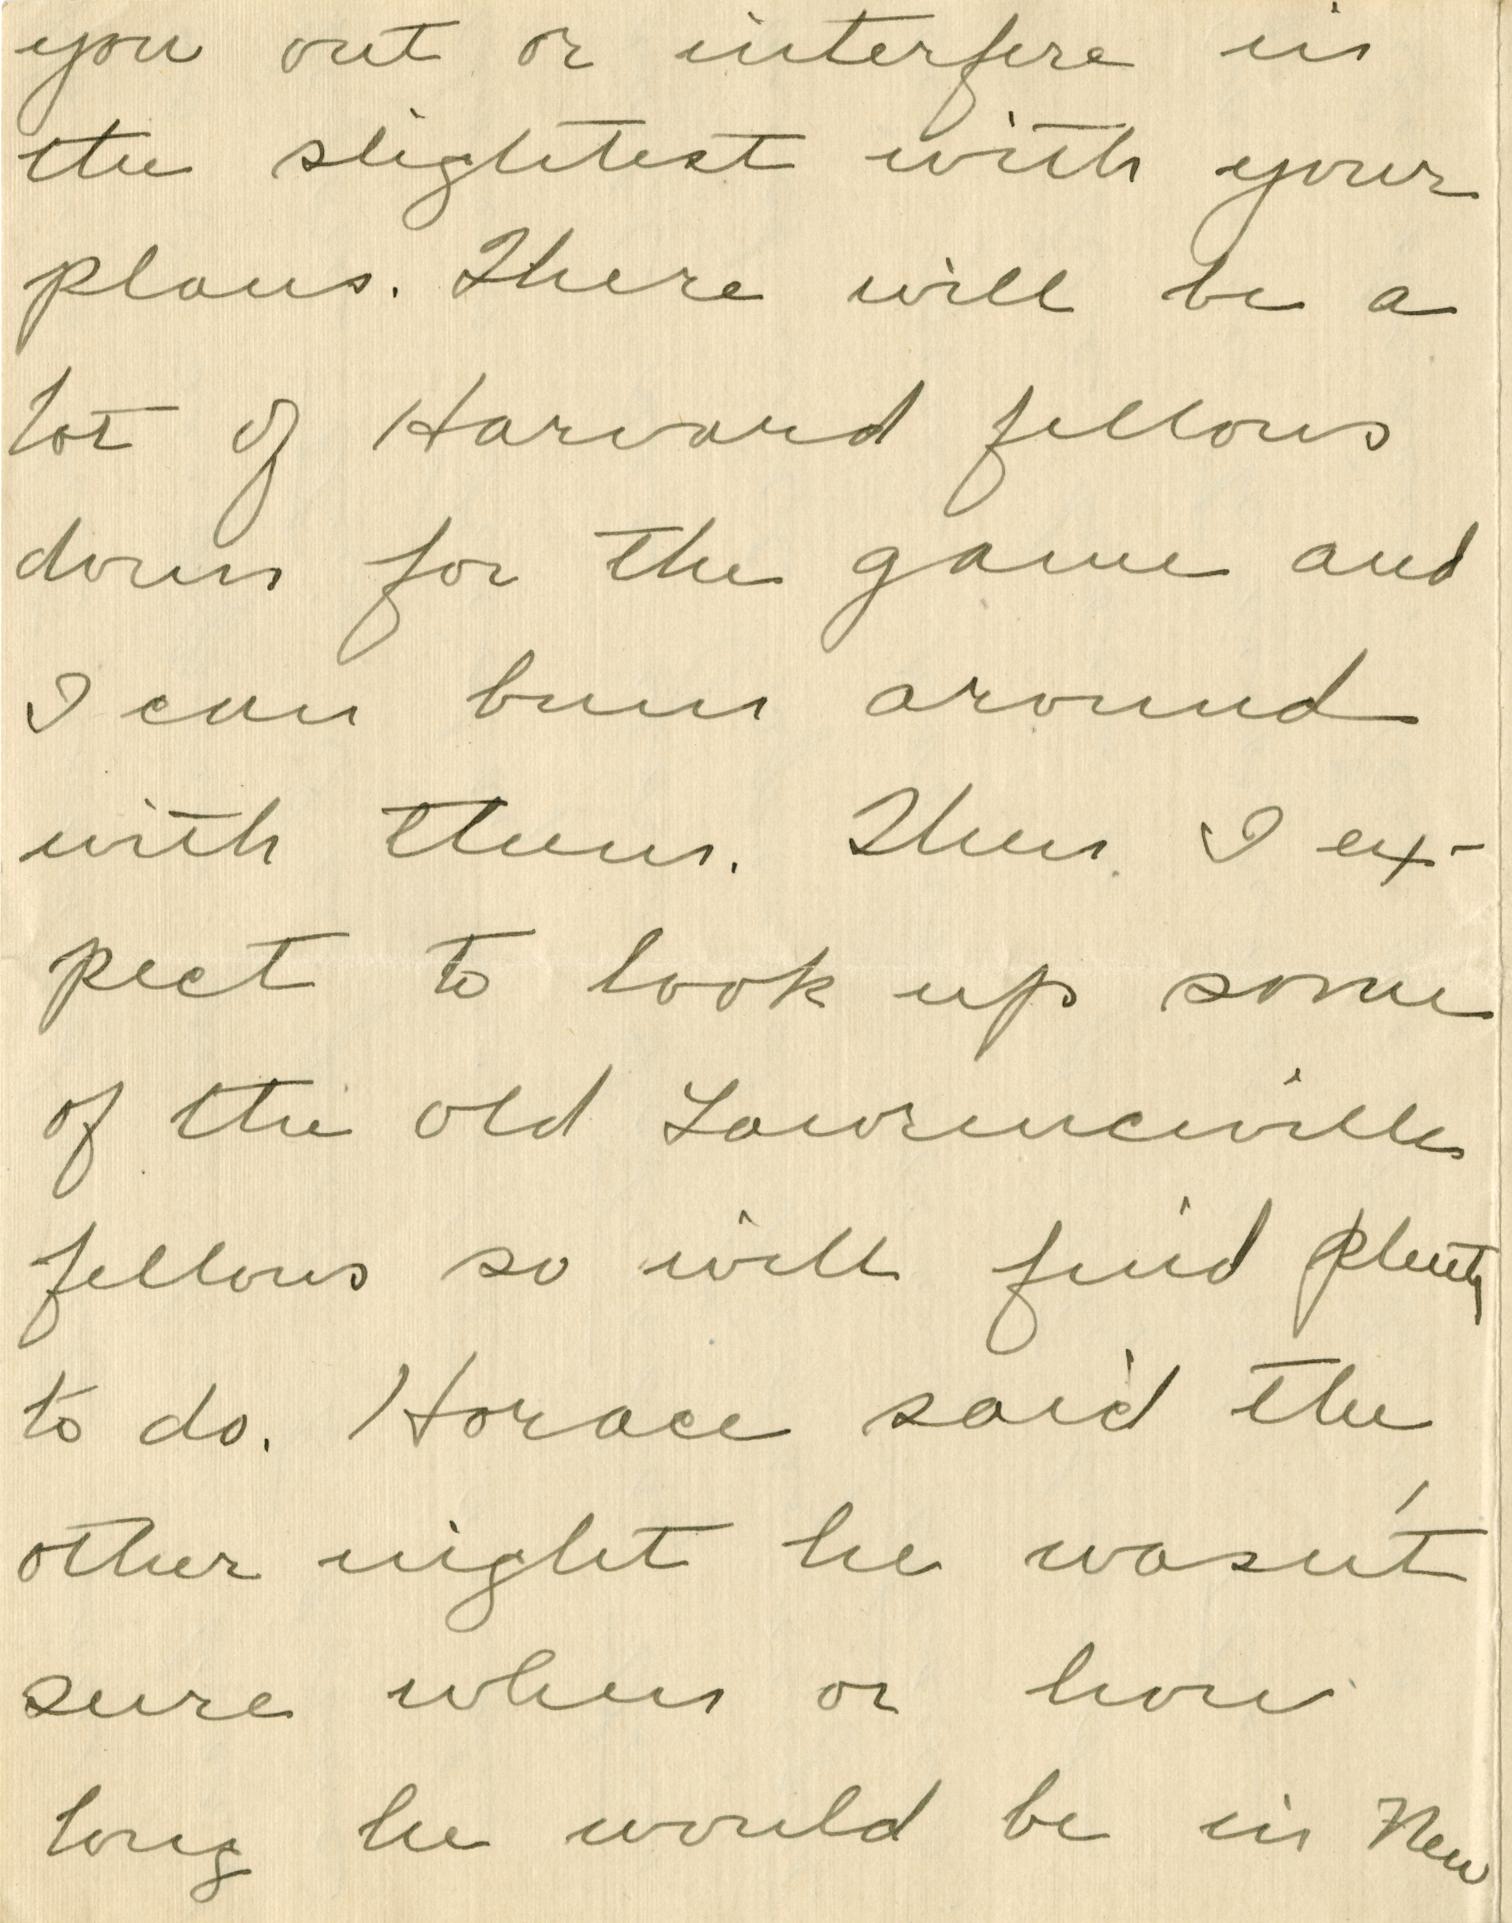 you out or interfere in
the slightest with your
plans. There will be a
lot of Harvard fellows
down for the game and
I can bum around
with them. Then I ex-
pect to look up some
of the old Lawrenceville
fellows so will find plenty
to do. Horace said the
other night he wasn't
sure when or how
long he would be in New